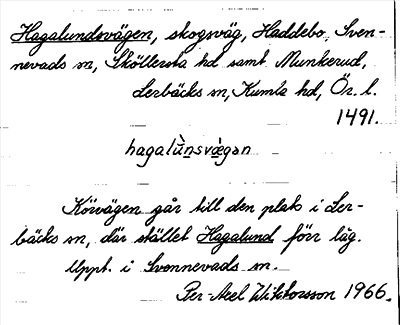 Hagalundsvägen, skogsväg, Haddebo, Sven-
nevads sn, Sköllersta hd samt Munkerud,
Lerbäcks sn, Kumla hd, Ör. l.
1491.
hagalùnsvæ̀gən
Körvägen går till den plats i Ler-
bäcks sn, där stället Hagalund förr låg.
Uppt. i Svennevads sn.
Per-Axel Wiktorsson 1966.